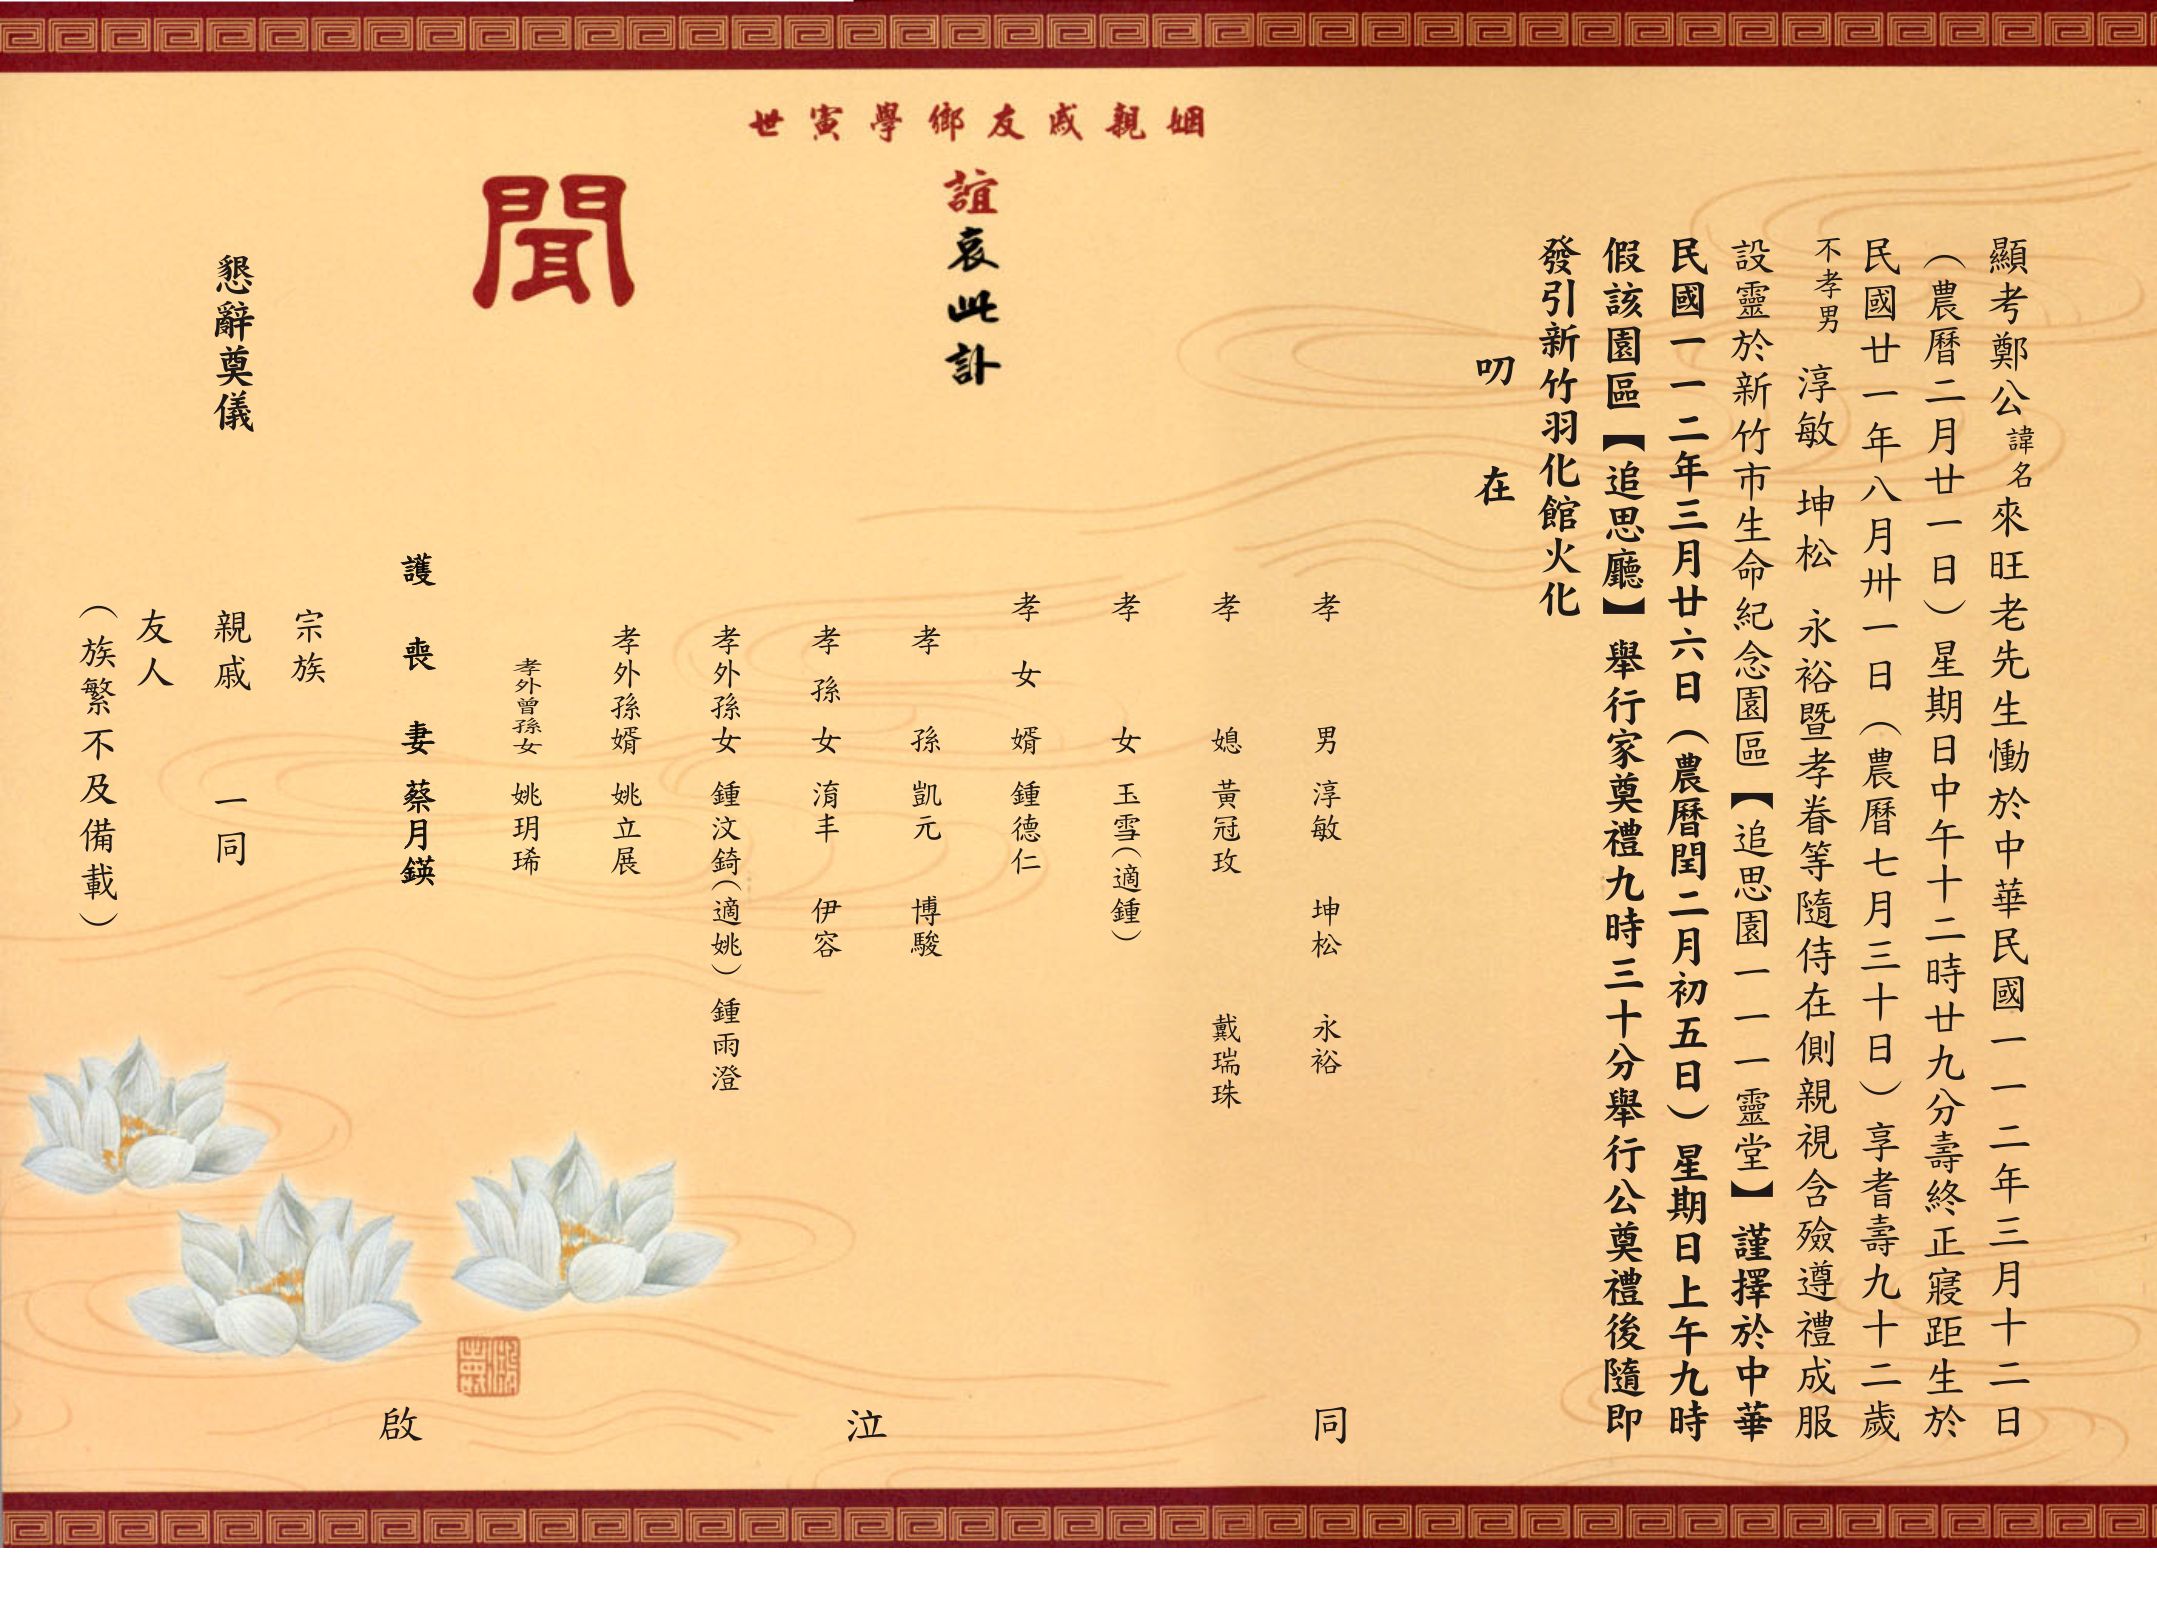 顯考鄭公諱名來旺老先生慟於中華民國一一二年三月十二日
（農曆二月廿一日）星期日中午十二時廿九分壽終正寢距生於
民國廿一年八月卅一日（農曆七月三十日）享耆壽九十二歲
不孝男 淳敏 坤松 永裕暨孝眷等隨侍在側親視含殮遵禮成服
設靈於新竹市生命紀念園區【追思園一一一靈堂】謹擇於中華
民國一一二年三月廿六日（農曆閏二月初五日）星期日上午九時
假該園區【追思廳】舉行家奠禮九時三十分舉行公奠禮後隨即
發引新竹羽化館火化
叨 在
姻親戚友鄉學寅世
誼哀此訃
聞
孝男 淳敏 坤松 永裕
孝媳 黃冠玫 戴瑞珠
孝女 玉雪（適鍾）
孝女婿 鍾德仁
孝孫 凱元 博駿
孝孫女 淯丰 伊容
孝外孫女 鍾汶錡（適姚） 鍾雨澄
孝外孫婿 姚立展
孝外曾孫女 姚玥琋
護喪妻 蔡月鍈
同 泣 啟
宗族
親戚 一同
友人
（族繁不及備載）
懇辭奠儀